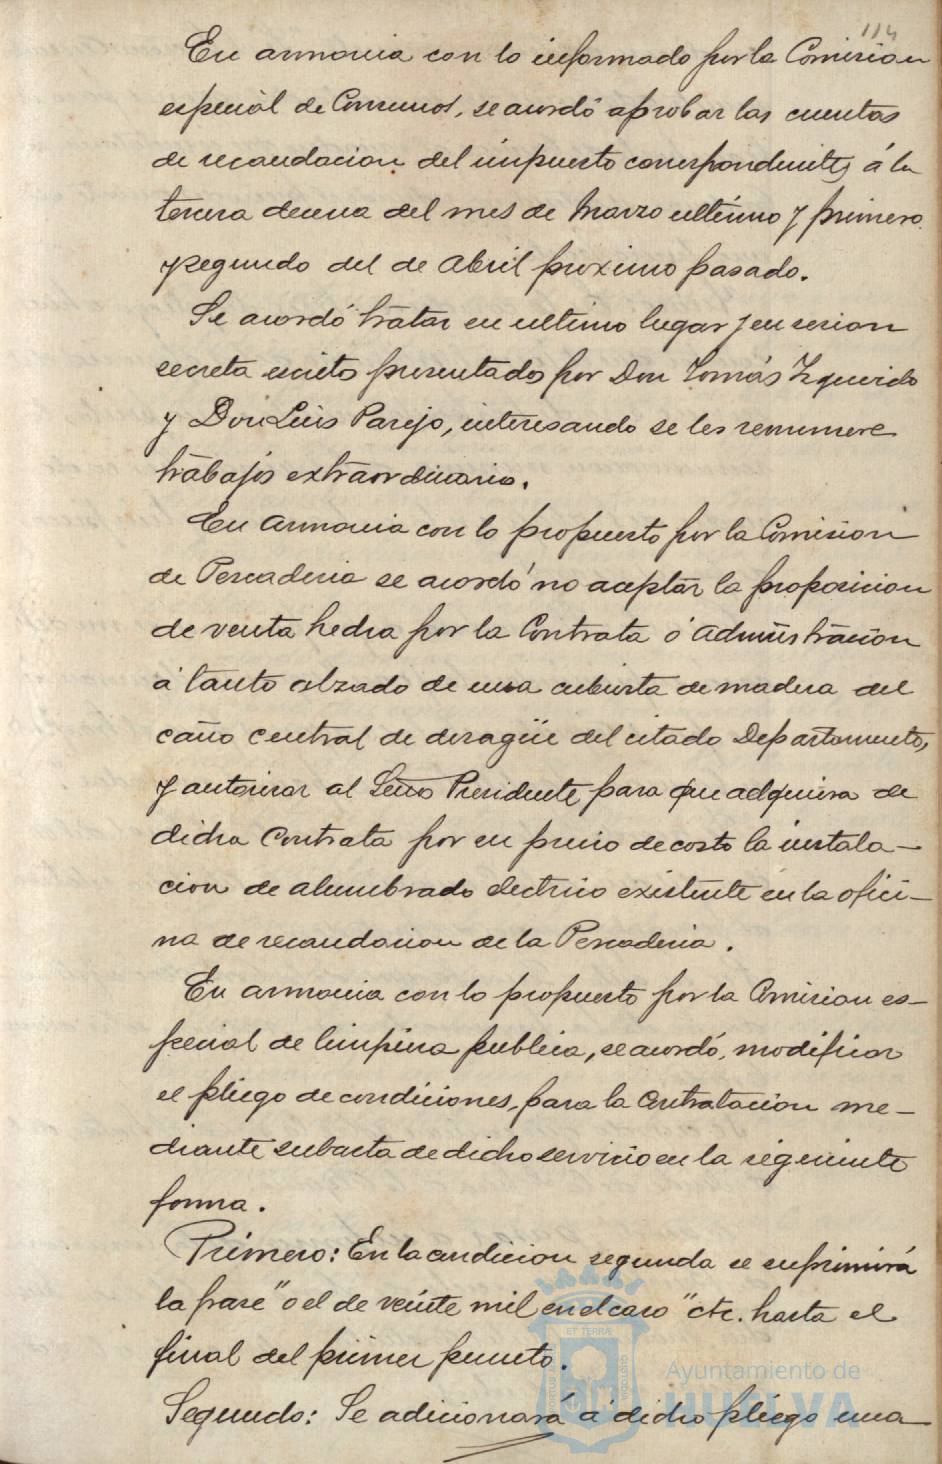 114
En armonia con lo informado por la Comision
especial de Consumos, se acordó aprobar las cuentas
de recaudacion del impuesto correspondientes á la
tercera decena del mes de Marzo ultimo y primera
y segundo del de Abril proximo pasado.
Se acordó tratar en ultimo lugar y en sesion
secreta escrito presentado por Don Tomás Izquierdo
y Don Luis Parejo, interesando se les remunere
trabajos extraordinarios.
En armonia con lo propuesto por la Comision
de Pescaderia se acordó no aceptar la proposicion
de venta hecha por la Contrata ó Administracion
á tanto alzado de una cubierta de madera del
caño central de desagüe del citado Departamento,
y autorizar al Señor Presidente para que adquiera de
dicha Contrata por su precio de costo la instala-
cion de alumbrado electrico existente en la ofici-
na de recaudacion de la Pescaderia.
En armonia con lo propuesto por la Comision es-
pecial de limpieza publica, se acordó, modificar
el pliego de condiciones, para la Contratacion me-
diante subasta de dicho servicio en la siguiente
forma.
Primero: En la condicion segunda se suprimirá
la frase "o el de veinte mil en el caso" etc. hasta el
final del primer punto.
Segundo: Se adicionará á dicho pliego una
ET TERRÆ
Ayuntamiento de
HUELVA